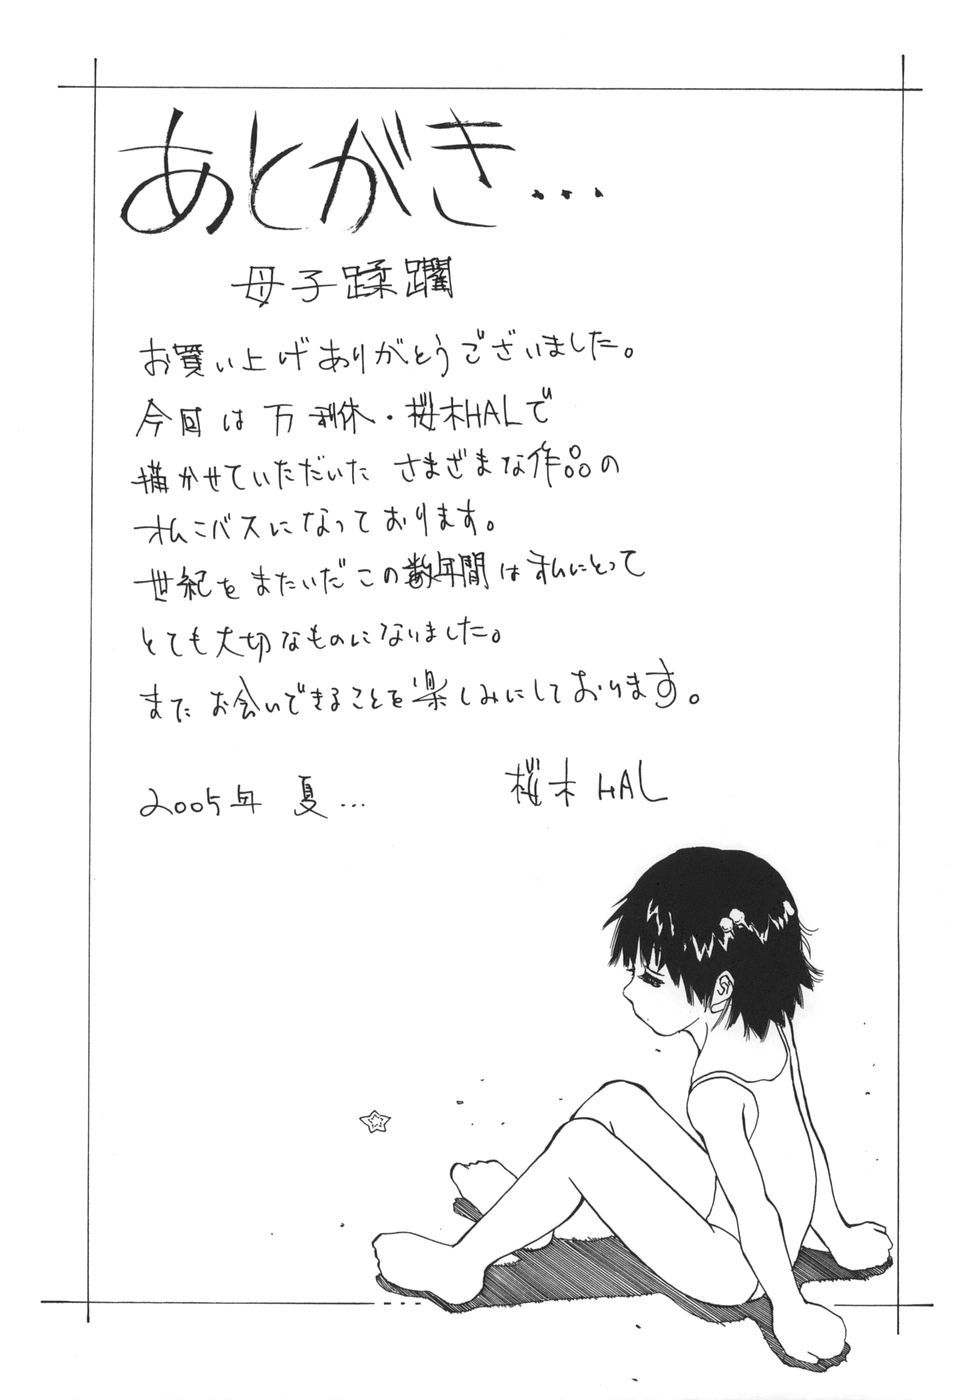 あとがき...
母子蹂躙
お買い上げありがとうございました。
今回は万利休・桜木HALで
描かせていただいた さまざまな作品の
オムニバスになっております。
世紀をまたいだこの数年間は私にとって
とても大切なものになりました。
また お会いできることを楽しみにしております。
2005年 夏...
桜木HAL